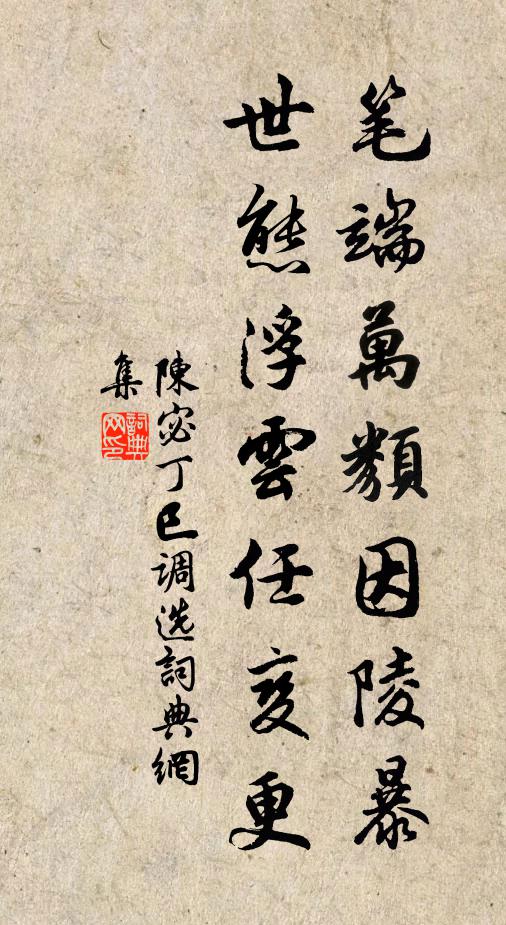 笔端萬類因陵暴
世態浮雲任变更
陳宓丁巳调选詞典網
集
詞典網印